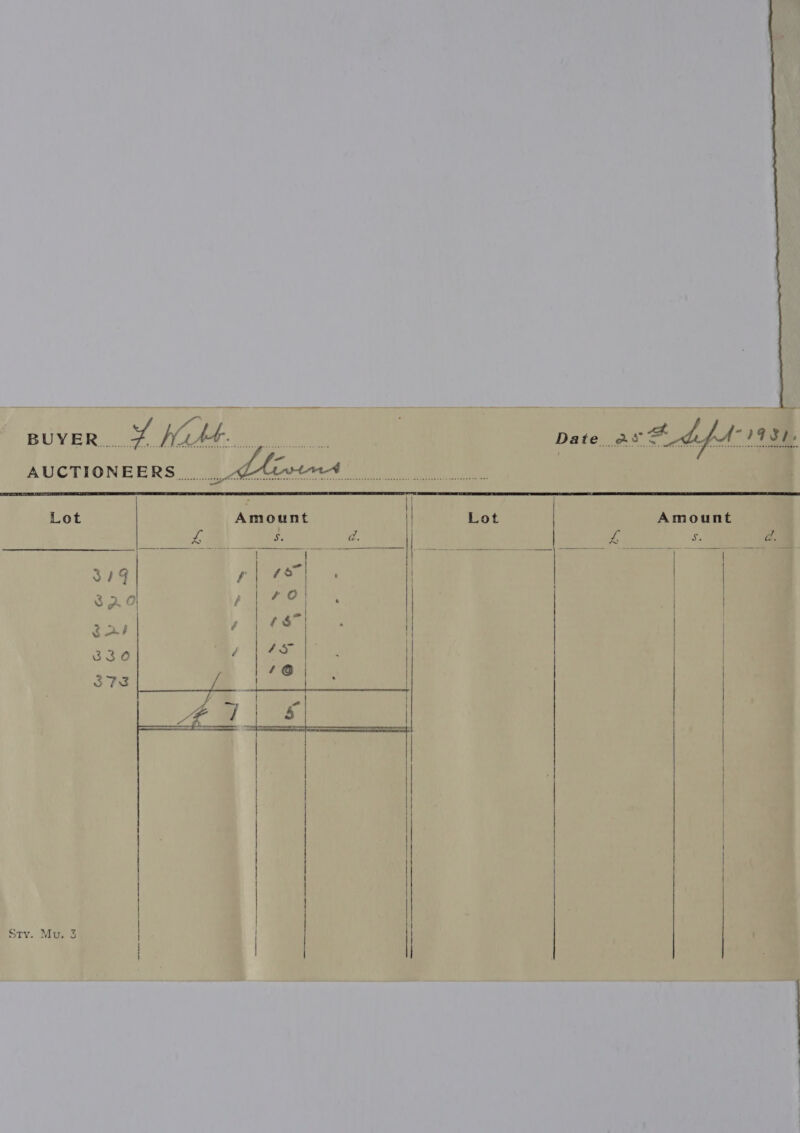 BUYER Date 25th Sept 1931.
AUCTIONEERS Stevens
Lot Amount Lot Amount
£ s. d. £ s. d.
319 1 15 .
320 1 10 .
321 1 15 .
330 1 15 .
373 10 .
£ 7 5
Sty. Mu. 3